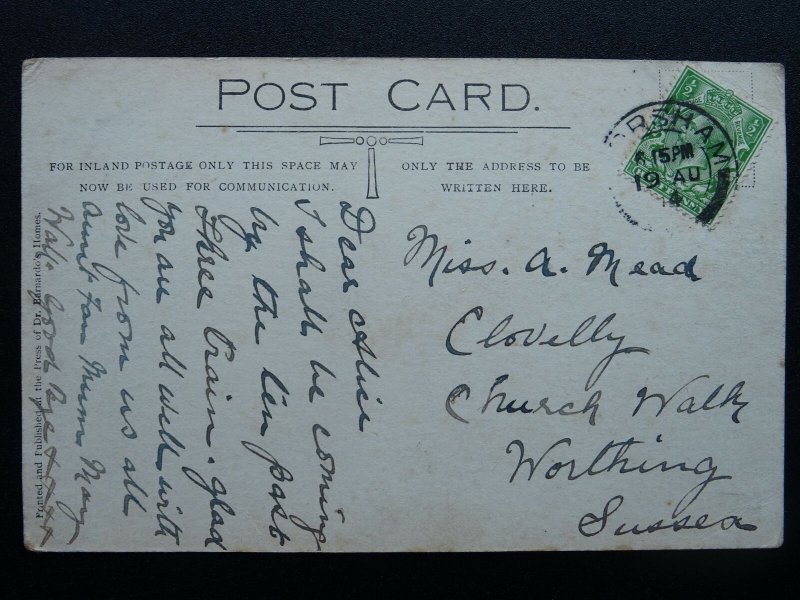 POST CARD.
FOR INLAND POSTAGE ONLY THIS SPACE MAY
NOW BE USED FOR COMMUNICATION.
ONLY THE ADDRESS TO BE
WRITTEN HERE.
ORSHAM
15PM
19 AU
14
½ ½
Miss. A. Mead
Clovelly
Church Walk
Worthing
Sussex
Dear Alice
I shall be coming
by the ten past
three train. glad
you are all well with
love from us all
Aunt Fan Mum May
Walt. Good Bye
Printed and Published at the Press of Dr. Barnardo's Homes.